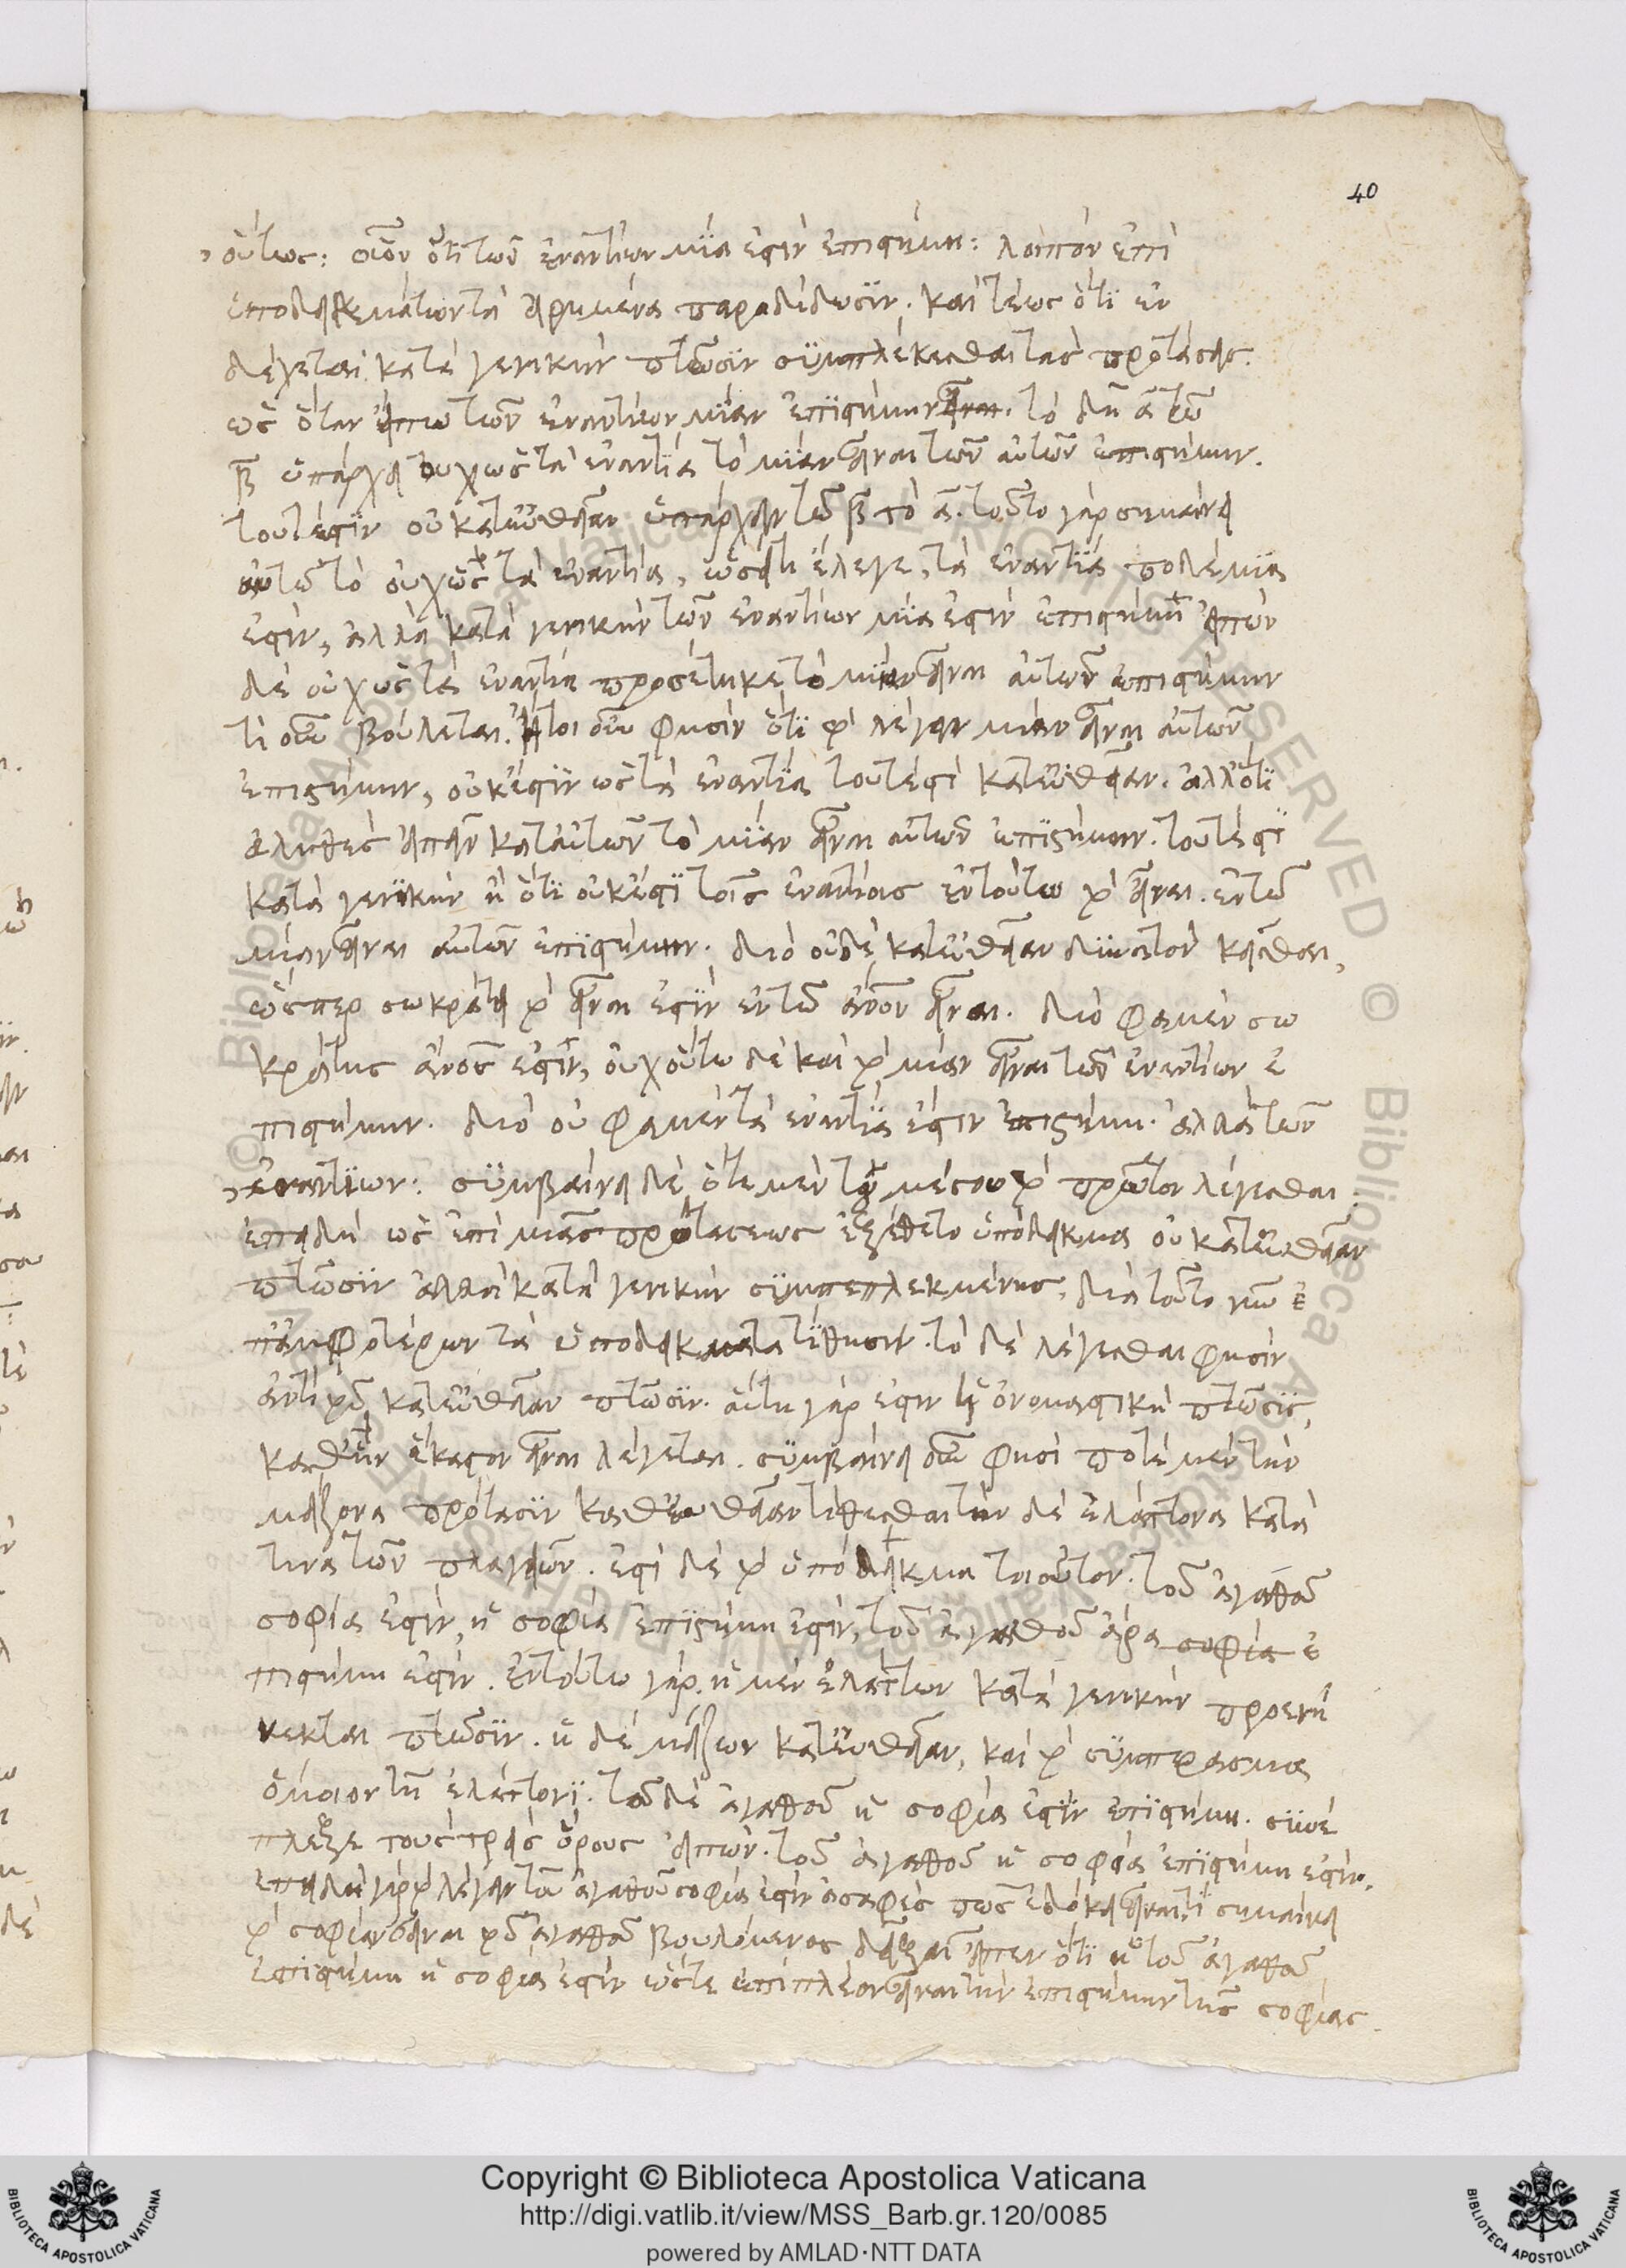 40
οὕτως: οἷον ὅτι τῶν ἐναντίων μία ἐστὶν ἐπιστήμη: λοιπὸν ἐπὶ
ὑποδειγμάτων τὰ εἰρημένα παραδίδωσιν. καὶ τέως ὅτι ἐν
δέχεται κατὰ γενικὴν πτῶσιν συμπλέκεσθαι τὰς προτάσεις.
ὡς ὅταν εἴπω τῶν ἐναντίων μίαν ἐπιστήμην εἶναι. τὸ δὴ α τῶ
β ὑπάρχει οὐχ ὡς τὰ ἐναντία τὸ μίαν εἶναι τῶν αὐτῶν ἐπιστήμην.
τουτέστιν οὐ κατευθεῖαν ὑπάρχειν τῶ β τὸ α. τοῦτο γὰρ σημαίνει
αὐτῶ τὸ οὐχ ὡς τὰ ἐναντία, ὡσεὶ ἔλεγε, τὰ ἐναντία πολέμια
ἐστιν, ἀλλὰ κατὰ γενικὴν τῶν ἐναντίων μία ἐστὶν ἐπιστήμη εἰπὼν
δὲ οὐχ ὡς τὰ ἐναντία προσέθηκε τὸ μίαν εἶναι αὐτῶν ἐπιστήμην
τί οὖν βούλεται. ἤτοι οὖν φησὶν ὅτι τὸ λέγειν μίαν εἶναι αὐτῶν
ἐπιστήμην, οὐκ ἔστιν ὡς τὰ ἐναντία τουτέστι κατευθεῖαν. ἀλλ' ὅτι
ἀληθὲς εἰπεῖν κατ' αὐτῶν τὸ μίαν εἶναι αὐτῶν ἐπιστήμην. τουτέστι
κατὰ γενικὴν ἢ ὅτι οὐκ ἔστι τοῖς ἐναντίοις ἐν τούτω τὸ εἶναι. ἐν τῶ
μίαν εἶναι αὐτῶν ἐπιστήμην. διὸ οὐδὲ κατευθεῖαν δύναται
ὥσπερ σωκράτει τὸ εἶναι ἐστὶν ἐν τῶ ἄνον εἶναι. διὸ φαμὲν σω
κράτης ἄνος ἐστίν, οὐχ οὕτω δὲ καὶ τὸ μίαν εἶναι τῶν ἐναντίων ἐ
πιστήμην. διὸ οὐ φαμὲν τὰ ἐναντία ἐστὶν ἐπιστήμη. ἀλλὰ τῶν
ἐναντίων: συμβαίνει δὲ ὁτὲ μὲν τοῦ μέσου τὸ πρῶτον λέγεσθαι:
ἐπειδὴ ὡς ἐπὶ μιᾶς προτάσεως ἐξέθετο ὑπόδειγμα οὐ κατευθεῖαν
πτῶσιν ἀλλὰ κατὰ γενικὴν συμπεπλεγμένης, διὰ τοῦτο νῦν ἐ
π' ἀμφοτέρων τὰ ὑποδείγματα τίθησιν. τὸ δὲ λέγεσθαι φησὶν
ἀντὶ τοῦ κατευθεῖαν πτῶσιν. αὕτη γάρ ἐστιν ἡ ὀνομαστικὴ πτῶσις,
καθ' ἣν ἕκαστον εἶναι λέγεται. συμβαίνει οὖν φησὶ ποτὲ μὲν τὴν
μείζονα πρότασιν κατ' εὐθεῖαν τίθεσθαι τὴν δὲ ἐλάττονα κατὰ
τινα τῶν πλαγίων. ἔστι δὲ τὸ ὑπόδειγμα τοιοῦτον. τοῦ ἀγαθοῦ
σοφία ἐστίν, ἡ σοφία ἐπιστήμη ἐστίν, τοῦ ἀγαθοῦ ἄρα σοφία ἐ
πιστήμη ἐστίν. ἐν τούτω γὰρ. ἡ μὲν ἐλάττων κατὰ γενικὴν προενή
νεκται πτῶσιν. ἡ δὲ μείζων κατευθεῖαν, καὶ τὸ συμπέρασμα
ὅμοιον τῆ ἐλάττονι. τοῦ δὲ ἀγαθοῦ ἡ σοφία ἐστὶν ἐπιστήμη. συνέ
πλεξε τοὺς τρεῖς ὅρους εἰπών. τοῦ ἀγαθοῦ ἡ σοφία ἐπιστήμη ἐστίν.
ἐπειδὴ γὰρ τὸ λέγειν τοῦ ἀγαθοῦ σοφία ἐστὶν ἀσαφὲς πως ἐδόκει εἶναι, τί σημαίνει
τὸ σοφίαν εἶναι τοῦ ἀγαθοῦ βουλόμενος δεῖξαι εἶπεν ὅτι ἡ τοῦ ἀγαθοῦ
ἐπιστήμη ἡ σοφία ἐστὶν ὥστε ἐπιπλέον εἶναι τὴν ἐπιστήμην τῆς σοφίας.
Copyright © Biblioteca Apostolica Vaticana
http://digi.vatlib.it/view/MSS_Barb.gr.120/0085
powered by AMLAD·NTT DATA